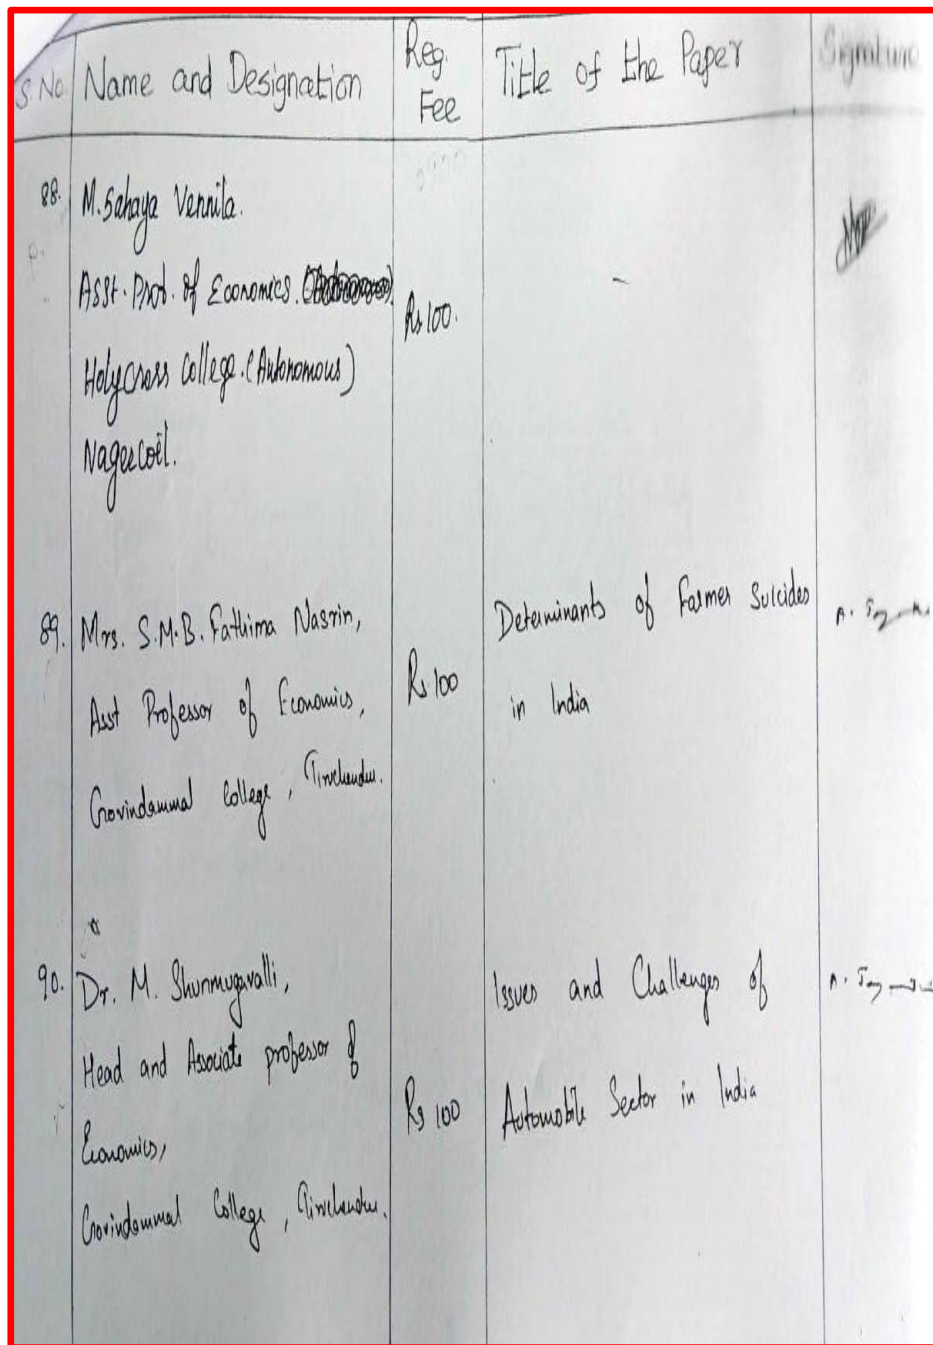 S.No Name and Designation Reg. Fee Title of the Paper Signature
88. M. Sahaya Vennila.
Asst. Prof. of Economics.
Holycross College. (Autonomous)
Nagercoil.
Rs 100.
-
89. Mrs. S.M.B. Fathima Nasrin,
Asst Professor of Economics,
Govindammal College, Tiruchendur.
Rs 100
Determinants of Farmer Suicides
in India
90. Dr. M. Shunmugavalli,
Head and Associate professor of
Economics,
Govindammal College, Tiruchendur.
Rs 100
Issues and Challenges of
Automobile Sector in India